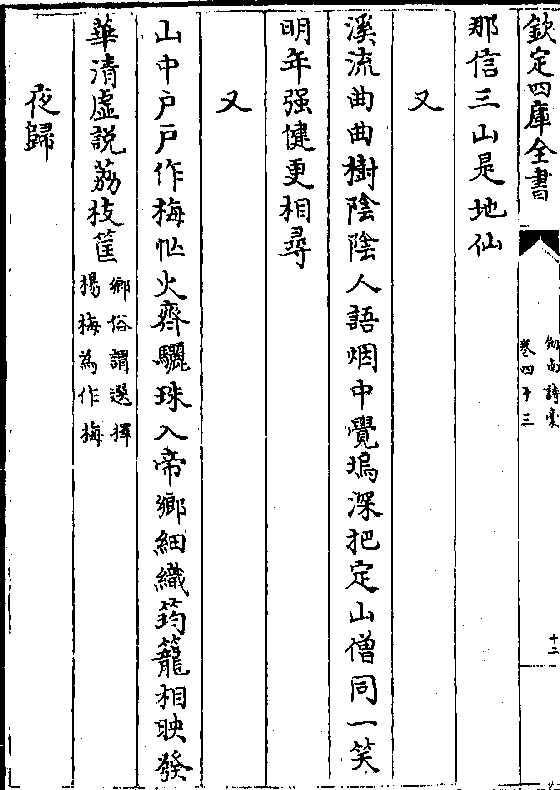 欽定四庫全書
劍南詩稾
卷四十三
十二
那信三山是地仙
又
溪流曲曲樹陰陰人語烟中覺塢深把定山僧同一笑
明年强健更相尋
又
山中户戸作梅忙火齊驪珠入帝鄉細織筠籠相映發
華清虚説荔枝筐鄉俗謂選擇
楊梅為作梅
夜歸